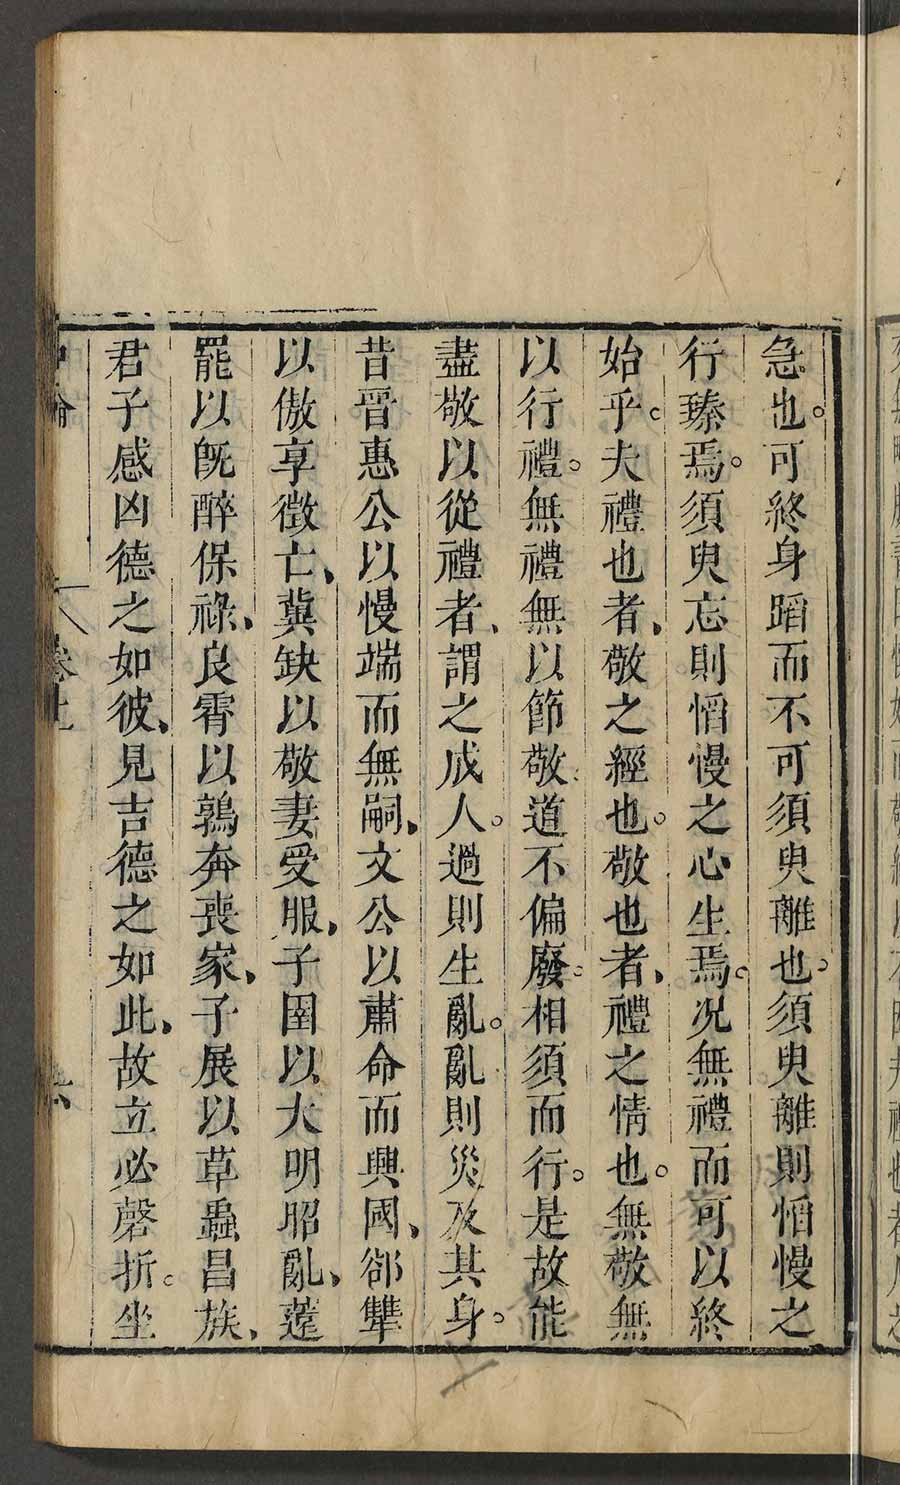 急也。可終身蹈而不可須臾離也。須臾離則慆慢之
行臻焉。須臾忘則慆慢之心生焉。况無禮而可以終
始乎。夫禮也者、敬之經也。敬也者、禮之情也。無敬無
以行禮。無禮無以節敬、道不偏廢。相須而行。是故能
盡敬以從禮者、謂之成人。過則生亂。亂則災及其身。
昔晉惠公以慢端而無嗣、文公以肅命而興國、郤犨
以傲享徵亡、冀缺以敬妻受服、子圉以大明昭亂、薳
罷以旣醉保祿、良霄以鶉奔喪家、子展以草蟲昌族、
君子感凶德之如彼、見吉德之如此、故立必磬折。坐
中論 卷 六